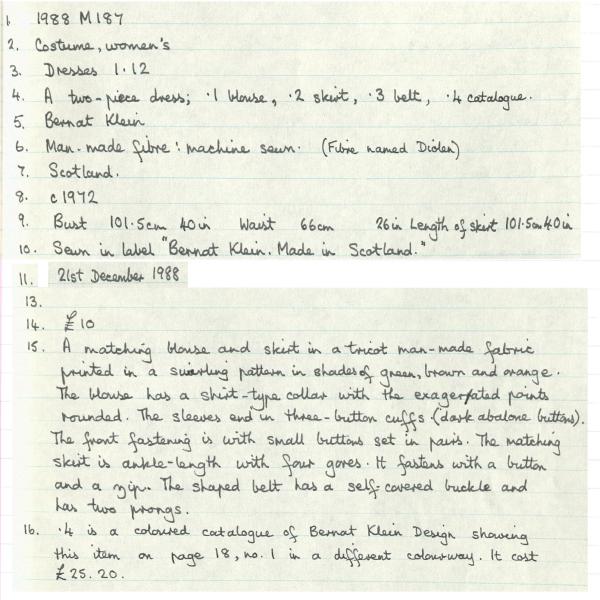 1. 1988 M187
2. Costume, women's
3. Dresses 1.12
4. A two-piece dress; .1 blouse, .2 skirt, .3 belt, .4 catalogue.
5. Bernat Klein
6. Man-made fibre: machine sewn. (Fibre named Diolen)
7. Scotland.
8. c1972
9. Bust 101.5cm 40in Waist 66cm 26in Length of skirt 101.5cm 40in
10. Sewn in label "Bernat Klein. Made in Scotland."
11. 21st December 1988
13.
14. £10
15. A matching blouse and skirt in a tricot man-made fabric
printed in a swirling pattern in shades of green, brown and orange.
The blouse has a shirt-type collar with the exagerated points
rounded. The sleeves end in three-button cuffs (dark abalone buttons).
The front fastening is with small buttons set in pairs. The matching
skirt is ankle-length with four gores. It fastens with a button
and a zip. The shaped belt has a self-covered buckle and
has two prongs.
16. .4 is a coloured catalogue of Bernat Klein Design showing
this item on page 18, no. 1 in a different colourway. It cost
£25.20.